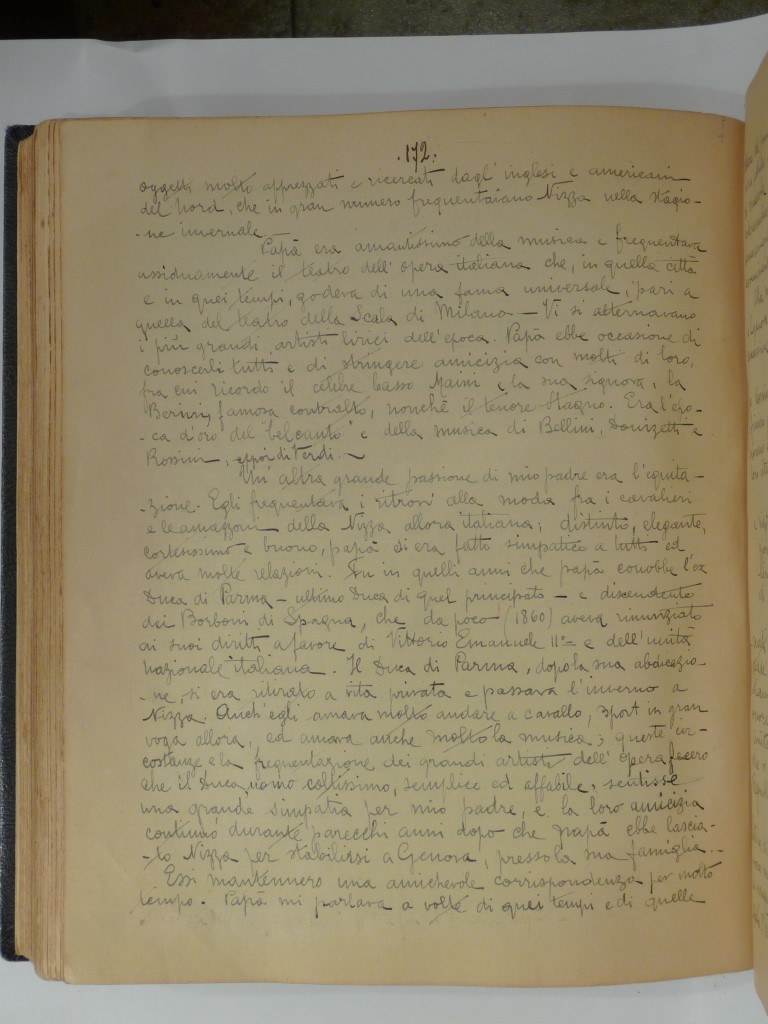 .172.
oggetti molto apprezzati e ricercati dagl'inglesi e americani
del Nord, che in gran numero frequentavano Nizza nella stagio-
-ne invernale.
Papà era amantissimo della musica e frequentava
assiduamente il teatro dell'opera italiana che, in quella città
e in quei tempi, godeva di una fama universale, pari a
quella del teatro della Scala di Milano — Vi si alternavano
i più grandi artisti lirici dell'epoca. Papà ebbe occasione di
conoscerli tutti e di stringere amicizia con molti di loro,
fra cui ricordo il celebre basso Maini e la sua signora, la
famosa contralto, nonchè il tenore Stagno. Era l'epo-
-ca d'oro del "belcanto" e della musica di Bellini, Donizetti e
Rossini, e poi di Verdi. —
Un'altra grande passione di mio padre era l'equita-
-zione. Egli frequentava i ritrovi alla moda fra i cavalieri
e le amazzoni della Nizza allora italiana; distinto, elegante,
cortesissimo e buono, papà si era fatto simpatico a tutti ed
aveva molte relazioni. Fu in quelli anni che papà conobbe l'ex
Duca di Parma — ultimo Duca di quel principato — e discendente
dei Borboni di Spagna, che da poco (1860) aveva rinunziato
ai suoi diritti a favore di Vittorio Emanuele II° e dell'unità
nazionale italiana. Il Duca di Parma, dopo la sua abdicazio-
-ne, si era ritirato a vita privata e passava l'inverno a
Nizza. Anch'egli amava molto andare a cavallo, sport in gran
voga allora, ed amava anche molto la musica; queste cir-
costanze e la frequentazione dei grandi artisti dell'opera fecero
che il Duca, uomo coltissimo, semplice ed affabile, sentisse
una grande simpatia per mio padre, e la loro amicizia
continuò durante parecchi anni dopo che papà ebbe lascia-
-to Nizza per stabilirsi a Genova, presso la sua famiglia. -
Essi mantennero una amichevole corrispondenza per molto
tempo. Papà mi parlava a volte di quei tempi e di quelle